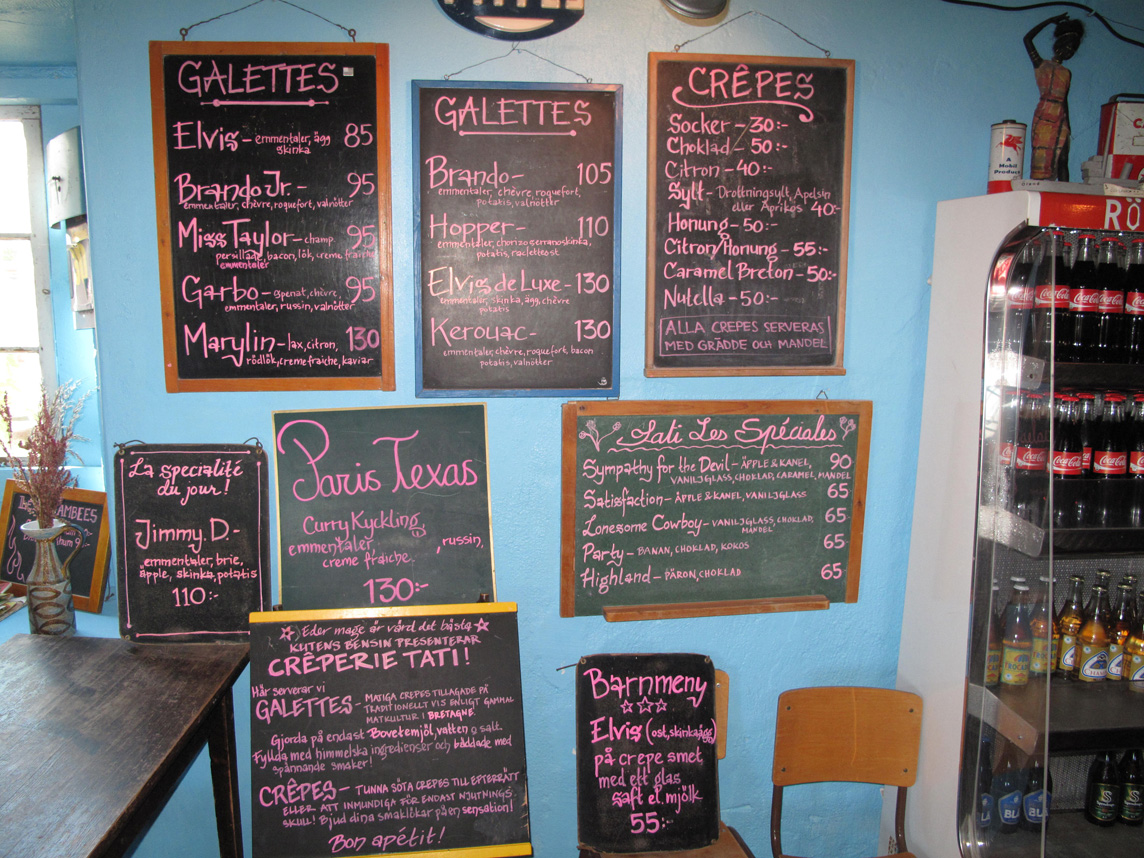 GALETTES
Elvis - emmentaler, ägg 85
skinka
Brando Jr. - 95
emmentaler, chèvre, roquefort, valnötter
Miss Taylor - champ. 95
persillage, bacon, lök, creme fraiche
emmentaler
Garbo - spenat, chèvre, 95
emmentaler, russin, valnötter
Marylin - lax, citron, 130
rödlök, creme fraiche, kaviar
GALETTES
Brando - 105
emmentaler, chèvre, roquefort,
potatis, valnötter
Hopper - 110
emmentaler, chorizo, serranoskinka,
potatis, racletteost
Elvis de Luxe - 130
emmentaler, skinka, ägg, chèvre
potatis
Kerouac - 130
emmentaler, chèvre, roquefort, bacon
potatis, valnötter
CRÊPES
Socker - 30:-
Choklad - 50:-
Citron - 40:-
Sylt - Drottningsylt, Apelsin
eller Aprikos 40:-
Honung - 50:-
Citron/Honung - 55:-
Caramel Breton - 50:-
Nutella - 50:-
ALLA CREPES SERVERAS
MED GRÄDDE OCH MANDEL
La specialité
du jour!
Jimmy. D. -
emmentaler, brie,
äpple, skinka, potatis
110:-
Paris Texas
Curry Kyckling
emmentaler, , russin,
creme fraiche.
130:-
Tati Les Spéciales
Sympathy for the Devil - ÄPPLE & KANEL, 90
VANILJGLASS, CHOKLAD, CARAMEL, MANDEL
Satisfaction - ÄPPLE & KANEL, VANILJGLASS 65
Lonesome Cowboy - VANILJGLASS, CHOKLAD, 65
MANDEL
Party - BANAN, CHOKLAD, KOKOS 65
Highland - PÄRON, CHOKLAD 65
Eder mage är värd det bästa
KUTENS BENSIN PRESENTERAR
CRÊPERIE TATI!
Här serverar vi
GALETTES - MATIGA CREPES TILLAGADE PÅ
TRADITIONELLT VIS ENLIGT GAMMAL
MATKULTUR I BRETAGNE.
Gjorda på endast Bovetemjöl, vatten o salt.
Fyllda med himmelska ingredienser och bäddade med
spännande smaker!
CRÊPES - TUNNA SÖTA CREPES TILL EFTERRÄTT
ELLER ATT INMUNDIGA FÖR ENDAST NJUTNINGS
SKULL! Bjud dina smaklökar på en sensation!
Bon apétit!
Barnmeny
Elvis (ost, skinka, ägg)
på crepe smet
med ett glas
saft el. mjölk
55:-
A
Mobil
Product
RÖ
Coca-Cola
Coca-Cola
Coca-Cola
Coca-Cola
Coca-Cola
Coca-Cola